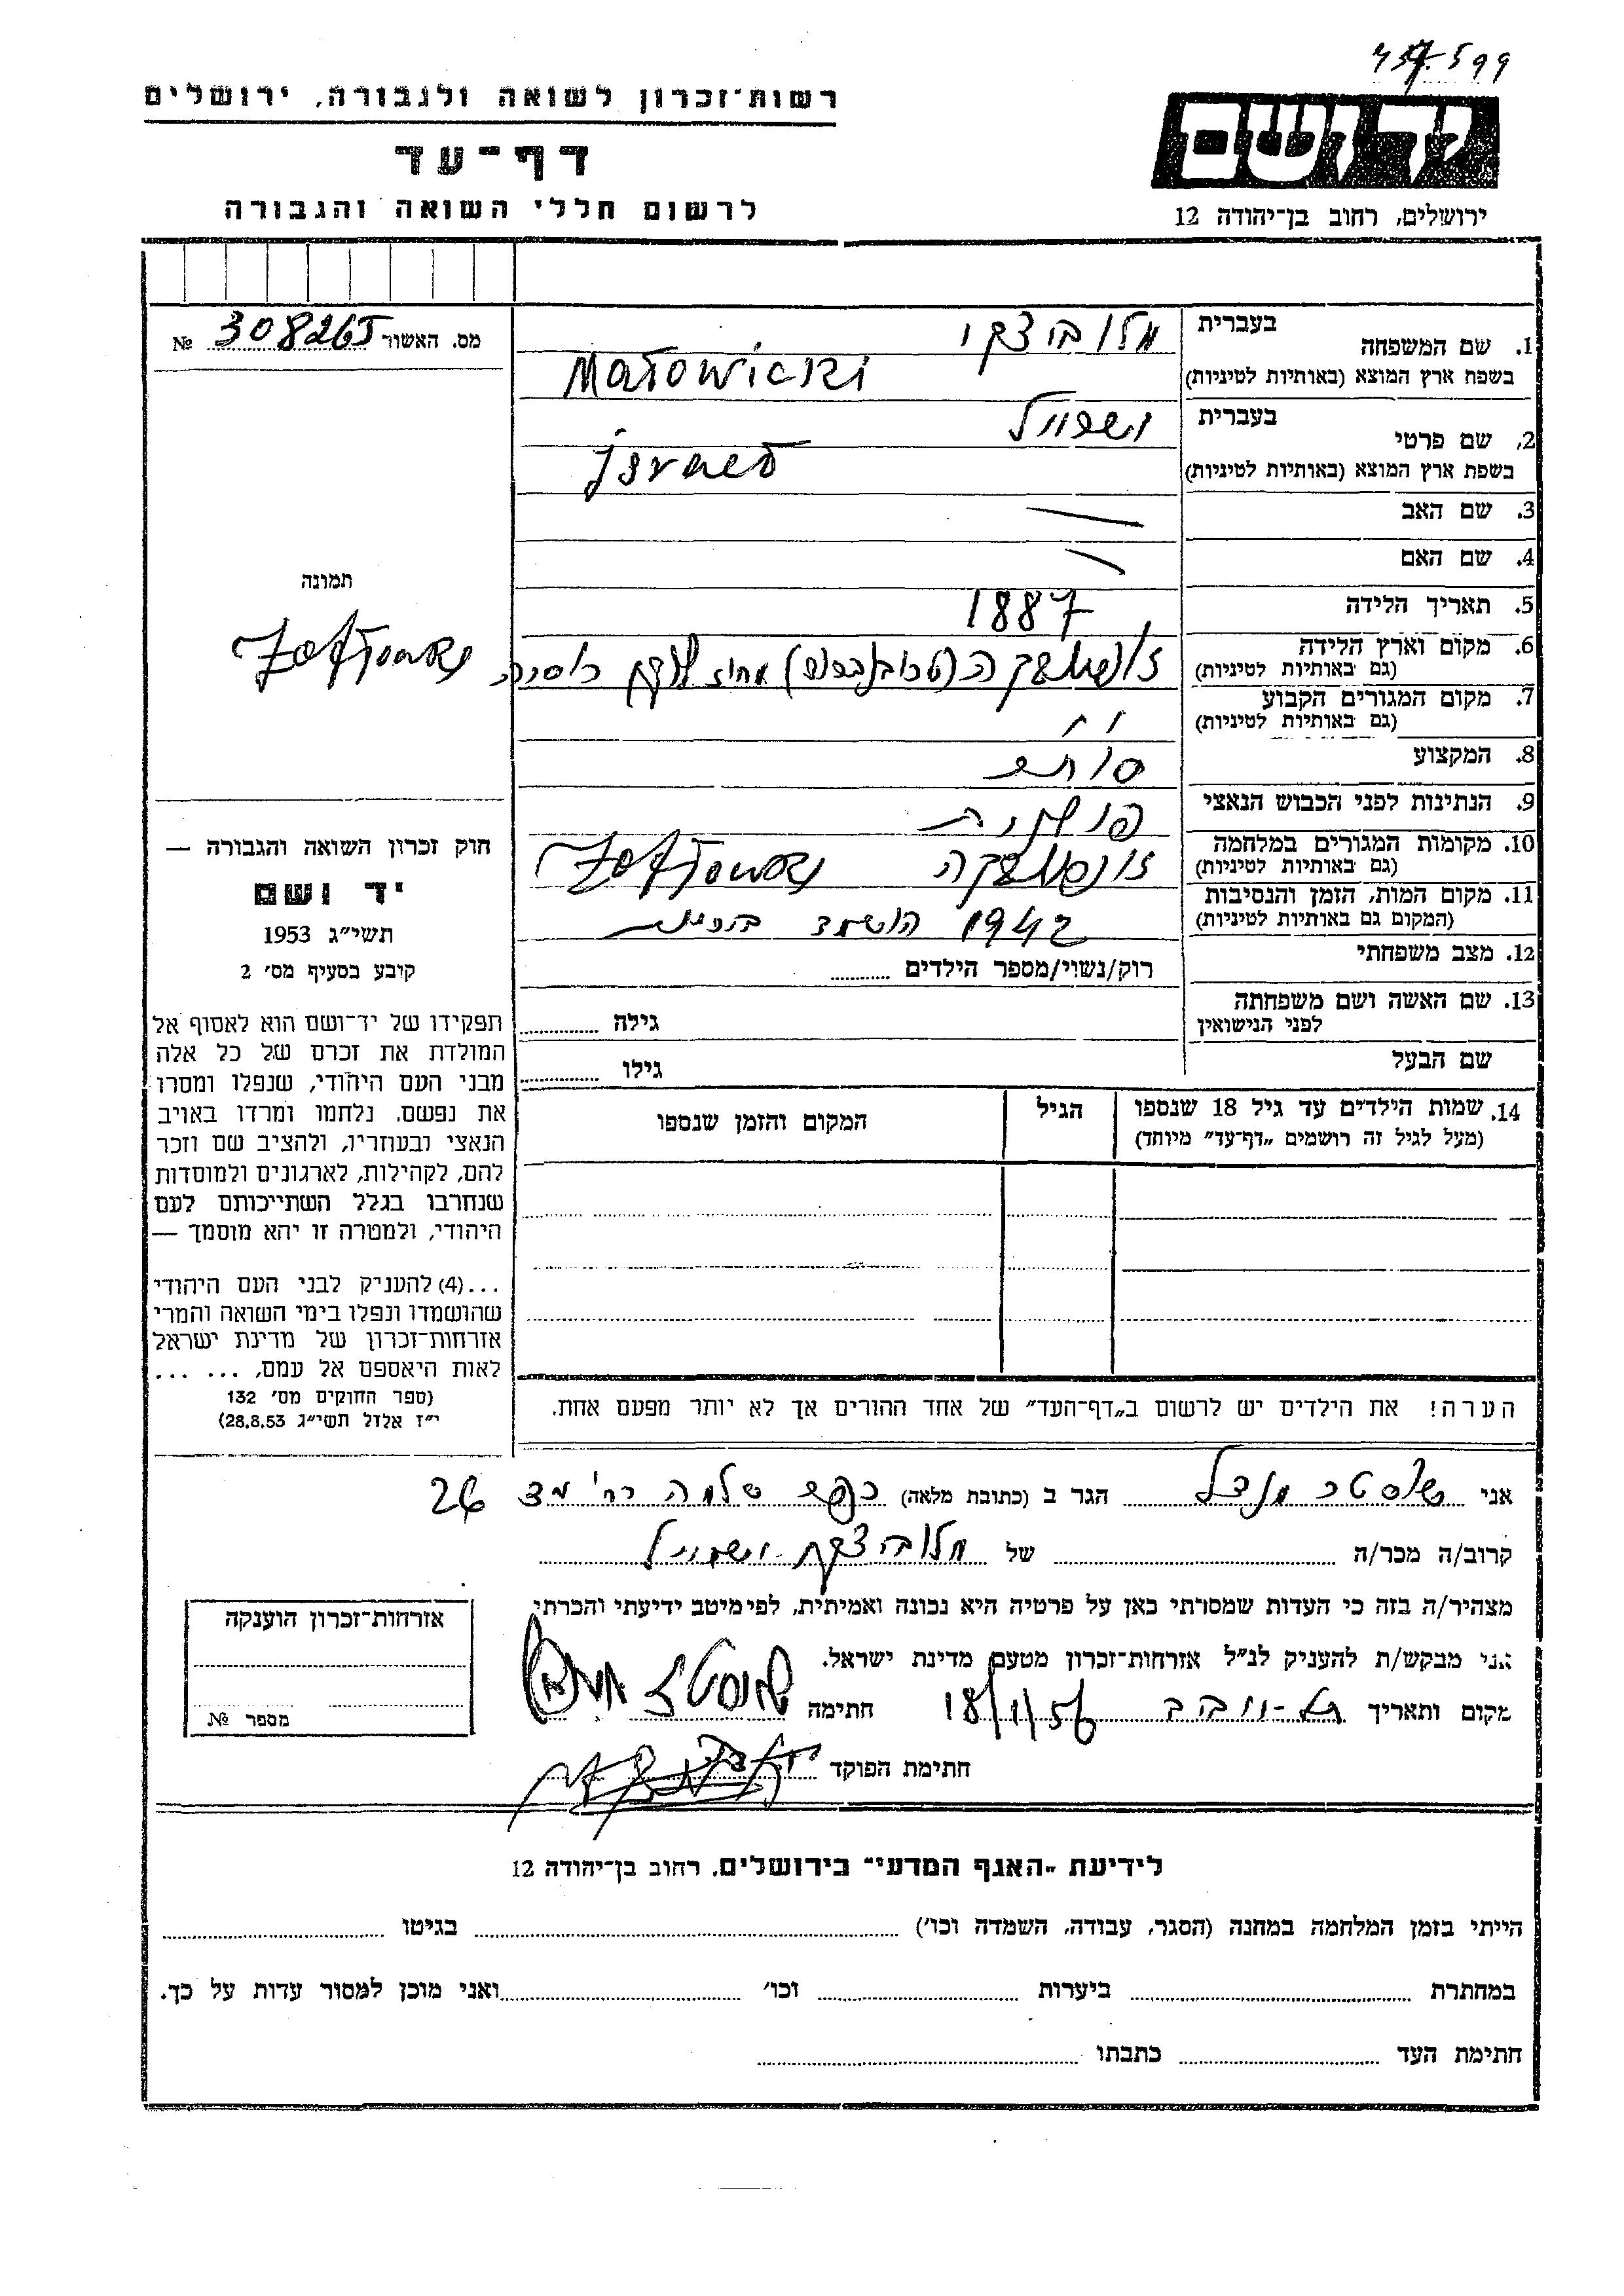 רשות־זכרון לשואה ולגבורה, ירושלים
דף־עד
לרשום חללי השואה והגבורה
ידושם
ירושלים, רחוב בן־יהודה 12
מס. האשור № 308265
1. שם המשפחה
בעברית
בשפת ארץ המוצא (באותיות לטיניות)
Małowicki
2. שם פרטי
בעברית
בשפת ארץ המוצא (באותיות לטיניות)
Jsrael
3. שם האב
4. שם האם
5. תאריך הלידה 1887
6. מקום וארץ הלידה
(גם באותיות לטיניות)
7. מקום המגורים הקבוע
(גם באותיות לטיניות)
8. המקצוע סוחר
9. הנתינות לפני הכבוש הנאצי פולנית
10. מקומות המגורים במלחמה
(גם באותיות לטיניות)
11. מקום המות, הזמן והנסיבות
(המקום גם באותיות לטיניות)
1942 הושמד
12. מצב משפחתי
רוק/נשוי/מספר הילדים
13. שם האשה ושם משפחתה
לפני הנישואין
גילה
שם הבעל
גילו
14. שמות הילדים עד גיל 18 שנספו
(מעל לגיל זה רושמים „דף־עד” מיוחד)
הגיל
המקום והזמן שנספו
הערה! את הילדים יש לרשום ב„דף־העד” של אחד ההורים אך לא יותר מפעם אחת.
תמונה
חוק זכרון השואה והגבורה —
יד ושם
תשי״ג 1953
קובע בסעיף מס׳ 2
תפקידו של יד־ושם הוא לאסוף אל
המולדת את זכרם של כל אלה
מבני העם היהודי, שנפלו ומסרו
את נפשם. נלחמו ומרדו באויב
הנאצי ובעוזריו, ולהציב שם וזכר
להם, לקהילות, לארגונים ולמוסדות
שנחרבו בגלל השתייכותם לעם
היהודי, ולמטרה זו יהא מוסמך —
...(4) להעניק לבני העם היהודי
שהושמדו ונפלו בימי השואה והמרי
אזרחות־זכרון של מדינת ישראל
לאות היאספם אל עמם, ... ...
(ספר החוקים מס׳ 132
י״ז אלול תשי״ג 28.8.53)
אני שוסטר מנדל הגר ב (כתובת מלאה) כפר שלמה 26
קרוב/ה מכר/ה של
מצהיר/ה בזה כי העדות שמסרתי כאן על פרטיה היא נכונה ואמיתית, לפי מיטב ידיעתי והכרתי
אני מבקש/ת להעניק לנ״ל אזרחות־זכרון מטעם מדינת ישראל.
מקום ותאריך תל-אביב 18/1/56 חתימה
חתימת הפוקד
אזרחות־זכרון הוענקה
מספר №
לידיעת „האגף המדעי” בירושלים, רחוב בן־יהודה 12
הייתי בזמן המלחמה במחנה (הסגר, עבודה, השמדה וכו׳) בגיטו
במחתרת ביערות וכו׳ ואני מוכן למסור עדות על כך.
חתימת העד כתבתו